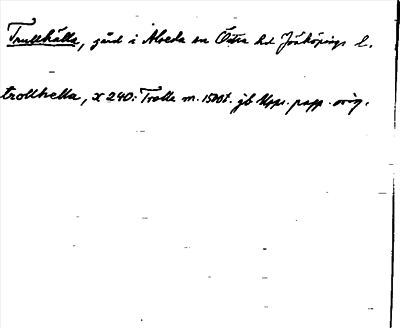 Trullhälla, gård i Alseda sn Östra hd Jönköpings l.
trollhella, x 240: Trolle m. 1500t. jb Upps. papp. orig.